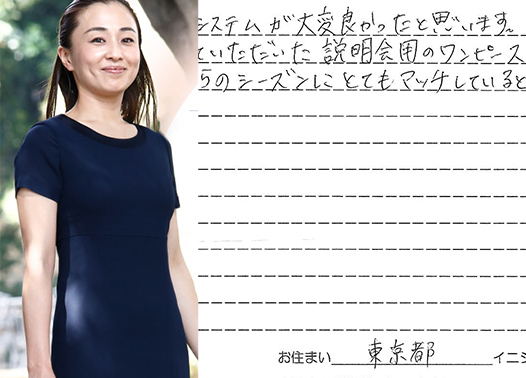 システムが大変良かったと思います。
ていただいた説明会用のワンピース
らのシーズンにとてもマッチしていると
お住まい 東京都 イニシ